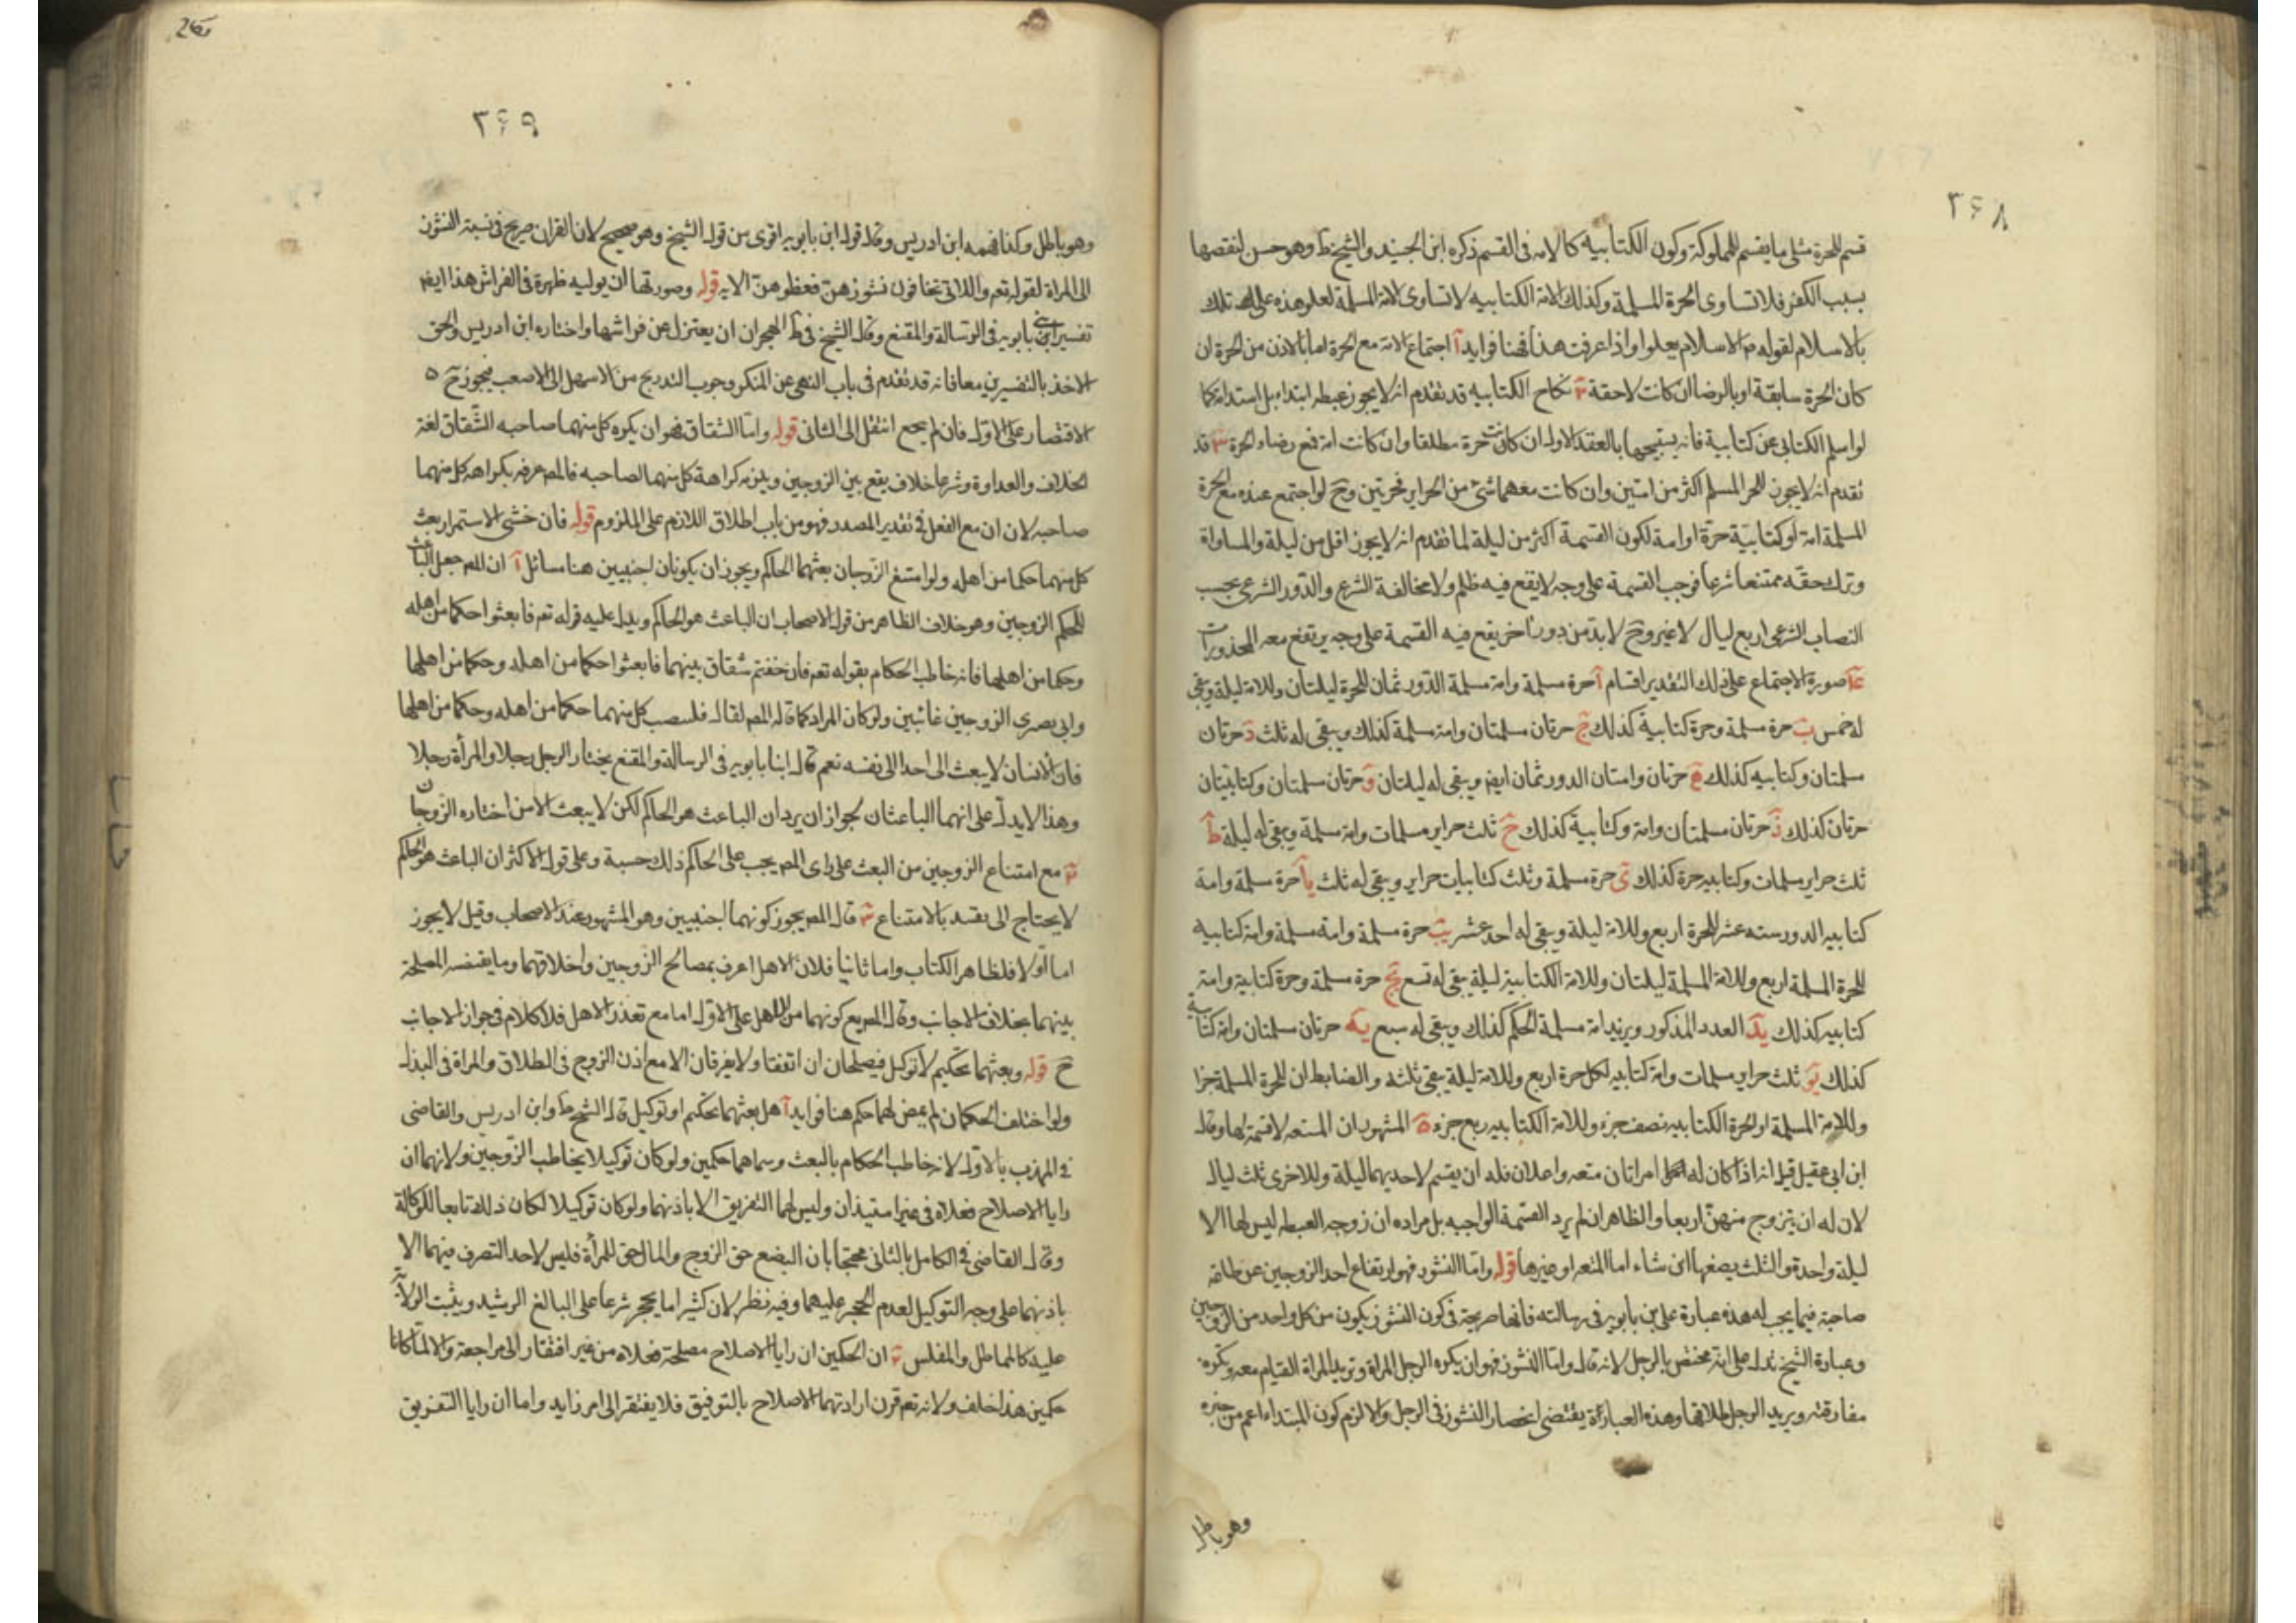 ۳۶۸
قسم للحرة مثلى ما يقسم للمملوكة وكون الكتابيه كالامه فى القسم ذكره ابن الجنيد والشيخ ط وهو حسن لنقصها
بسبب الكفر فلا تساوى الحرة المسلمة وكذلك الامة الكتابيه لا تساوى الامة المسلمة لعلو هذه على تلك
بالاسلام لقوله ص الاسلام يعلوا واذا عرفت هذا فهنا فوايد آ اجتماع الامة مع الحرة اما بالاذن من الحرة ان
كان الحرة سابقة او بالرضا ان كانت لاحقة ب نكاح الكتابيه قد تقدم انه لا يجوز غبطه ابتداء بل استدامة كما
لو اسلم الكتابى عن كتابية فانه يستبيحها بالعقد الاول ان كانت حرة مطلقا وان كانت امة فمع رضاء الحرة ج قد
تقدم انه لا يجوز للحر المسلم اكثر من امتين وان كانت معهما شئ من الحراير فحرتين وح لو اجتمع عنده مع الحرة
المسلمة امة او كتابية حرة او امة لكون القسمة اكثر من ليلة لما تقدم انه لا يجوز اقل من ليلة والمساواة
وترك حقه ممتنعا شرعا فوجب القسمة على وجه لا يقع فيه ظلم ولا مخالفة الشرع والدور الشرعى بحسب
النصاب الشرعى اربع ليال لا غير وح لا بد من دور اخر يقع فيه القسمة على وجه يرتفع معه المحذورات
صورة الاجتماع على ذلك التقدير اقسام آ حرة مسلمة وامة مسلمة الدور ثمان للحرة ليلتان وللامة ليلة ويبقى
له خمس ب حرة مسلمة وحرة كتابية كذلك ج حرتان مسلمتان وامة مسلمة كذلك ويبقى له ثلث د حرتان
مسلمتان وكتابيه كذلك ه حرتان وامتان الدور ثمان ايضا ويبقى له ليلتان و حرتان مسلمتان وكتابيتان
حرتان كذلك ز حرتان مسلمتان وامة وكتابية كذلك ح ثلث حراير مسلمات وامة مسلمة ويبقى له ليلة ط
ثلث حراير مسلمات وكتابيه حرة كذلك ى حرة مسلمة وثلث كتابيات حراير ويبقى له ثلث يا حرة مسلمة وامة
كتابيه الدور سته عشر للحرة اربع وللامة ليلة ويبقى له احد عشر يب حرة مسلمة وامة مسلمة وامة كتابيه
للحرة المسلمة اربع وللامة المسلمة ليلتان وللامة الكتابية ليلة يبقى له تسع يج حرة مسلمة وحرة كتابية وامة
كتابيه كذلك يد العدد المذكور ويزيد امة مسلمة الحكم كذلك ويبقى له سبع يه حرتان مسلمتان وامة كتابية
كذلك يو ثلث حراير مسلمات وامة كتابيه لكل حرة اربع وللامة ليلة يبقى ثلثة والضابط ان للحرة المسلمة جزا
وللامة المسلمة او الحرة الكتابيه نصف جزء وللامة الكتابيه ربع جزء ه المشهور ان المتعه لا قسمة لها وقال
ابن ابى عقيل قيل انه اذا كان له امراتان متعه واعلان فله ان يقسم لاحديهما ليلة وللاخرى ثلث ليال
لان له ان يتزوج منهن اربعا والظاهر ان لم يرد القسمة الواجبه بل مراده ان زوجه الغبطه ليس لها الا
ليلة واحدة والثلث يضعها اين شاء اما المتعه او غيرها قوله واما النشوز فهو ارتفاع احد الزوجين عن طاقه
صاحبه فيما يجب له هذه عبارة على بن بابويه فى رسالته فانها صريحة فى كون النشوز يكون من كل واحد من الزوجين
وعبارة الشيخ تدل على انه مختص بالرجل لانه قال واما النشوز فهو ان يكره الرجل المراة وتريد المراة القيام معه وتكره
مفارقته ويريد الرجل طلاقها وهذه العبارة يقتضى انحصار النشوز فى الرجل والا لزم كون المبتداء اعم من خبره
وهو باطل
۳۶۹
وهو باطل وكذا فهمه ابن ادريس وقال قول ابن بابويه اقوى من قول الشيخ وهو صحيح لان القران صريح فى نسبة النشوز
الى المراة لقوله تعم واللاتى تخافون نشوزهن فعظوهن الايه قوله وصورتها ان يوليه ظهرة فى الفراش هذا ايضا
تفسير ابنى بابويه فى الرسالة والمقنع وقال الشيخ فى ط الهجران ان يعتزل عن فراشها واختاره ابن ادريس والحق
الاخذ بالتفسيرين معا فانه قد تقدم فى باب النهى عن المنكر وجوب التدريج من الاسهل الى الاصعب فيجوز ح
الاقتصار على الاول فان لم ينجع انتقل الى الثانى قوله واما الشقاق فهو ان يكره كل منهما صاحبه الشقاق لغة
الخلاف والعداوة وشرعا خلاف يقع بين الزوجين ويلزمه كراهة كل منهما لصاحبه فالمص عرفه بكراهه كل منهما
صاحبه لان ان مع الفعل فى تقدير المصدر فهو من باب اطلاق اللازم على الملزوم قوله فان خشى الاستمرار بعث
كل منهما حكما من اهله ولو امتنع الزوجان بعثهما الحاكم ويجوز ان يكونان اجنبيين هنا مسائل آ ان المص جعل الباعث
للحكم الزوجين وهو خلاف الظاهر من قول الاصحاب ان الباعث هو الحاكم ويدل عليه قوله تعم فابعثوا حكما من اهله
وحكما من اهلها فانه خاطب الحكام بقوله تعم فان خفتم شقاق بينهما فابعثوا حكما من اهله وحكما من اهلها
وابى بصرى الزوجين غائبين ولو كان المراد كما قاله المص لقال فلسصب كل منهما حكما من اهله وحكما من اهلها
فان الانسان لا يبعث الى احد الى نفسه نعم قال ابنا بابويه فى الرسالة والمقنع يختار الرجل رجلا والمرأة رجلا
وهذا لا يدل على انهما الباعثان لجواز ان يردان الباعث هو الحاكم لكن لا يبعث الا من اختاره الزوجان
ب مع امتناع الزوجين من البعث على راى المص يجب على الحاكم ذلك حسبة وعلى قول الاكثر ان الباعث هو الحاكم
لا يحتاج الى تقييد بالامتناع ج قال المص يجوز كونهما اجنبيين وهو المشهور عند الاصحاب وقيل لا يجوز
اما اولا فلظاهر الكتاب واما ثانيا فلان الاهل اعرف بمصالح الزوجين واخلاقهما وما يقتضيه المصلحة
بينهما بخلاف الاجانب وقال كونهما من الاهل على الاول اما مع تعذر الاهل فلا كلام فى جواز الاجانب
ح قوله وبعثهما تحكيم لا توكيل فيصلحان ان اتفقا ولا يفرقان الا مع اذن الزوج فى الطلاق والمراة فى البذل
ولو اختلف الحكمان لم يمض لهما حكم هنا فوايد آ هل بعثهما تحكيم او توكيل قال الشيخ ط وابن ادريس والقاضى
فى المهذب بالاول لانه خاطب الحكام بالبعث وسماهما حكمين ولو كان توكيلا يخاطب الزوجين ولانهما ان
رايا الاصلاح فعلاه فى غير استيذان وليس لهما التفريق الا باذنهما ولو كان توكيلا لكان ذلك تابعا للوكالة
وقال القاضى فى الكامل بالثانى محتجا بان البضع حق الزوج والمال حق للمرأة فليس لاحد التصرف فيهما الا
باذنهما على وجه التوكيل لعدم الحجر عليهما وفيه نظر لان كثيرا ما يحجر شرعا على البالغ الرشيد ويثبت الولاية
عليه كالمماطل والمفلس ب ان الحكمين ان رايا الاصلاح مصلحة فعلاه من غير افتقار الى مراجعة والا لما كانا
حكمين هذا خلف ولانه تعم قرن ارادتهما الاصلاح بالتوفيق فلا يفتقر الى امر زايد واما ان رايا التفريق